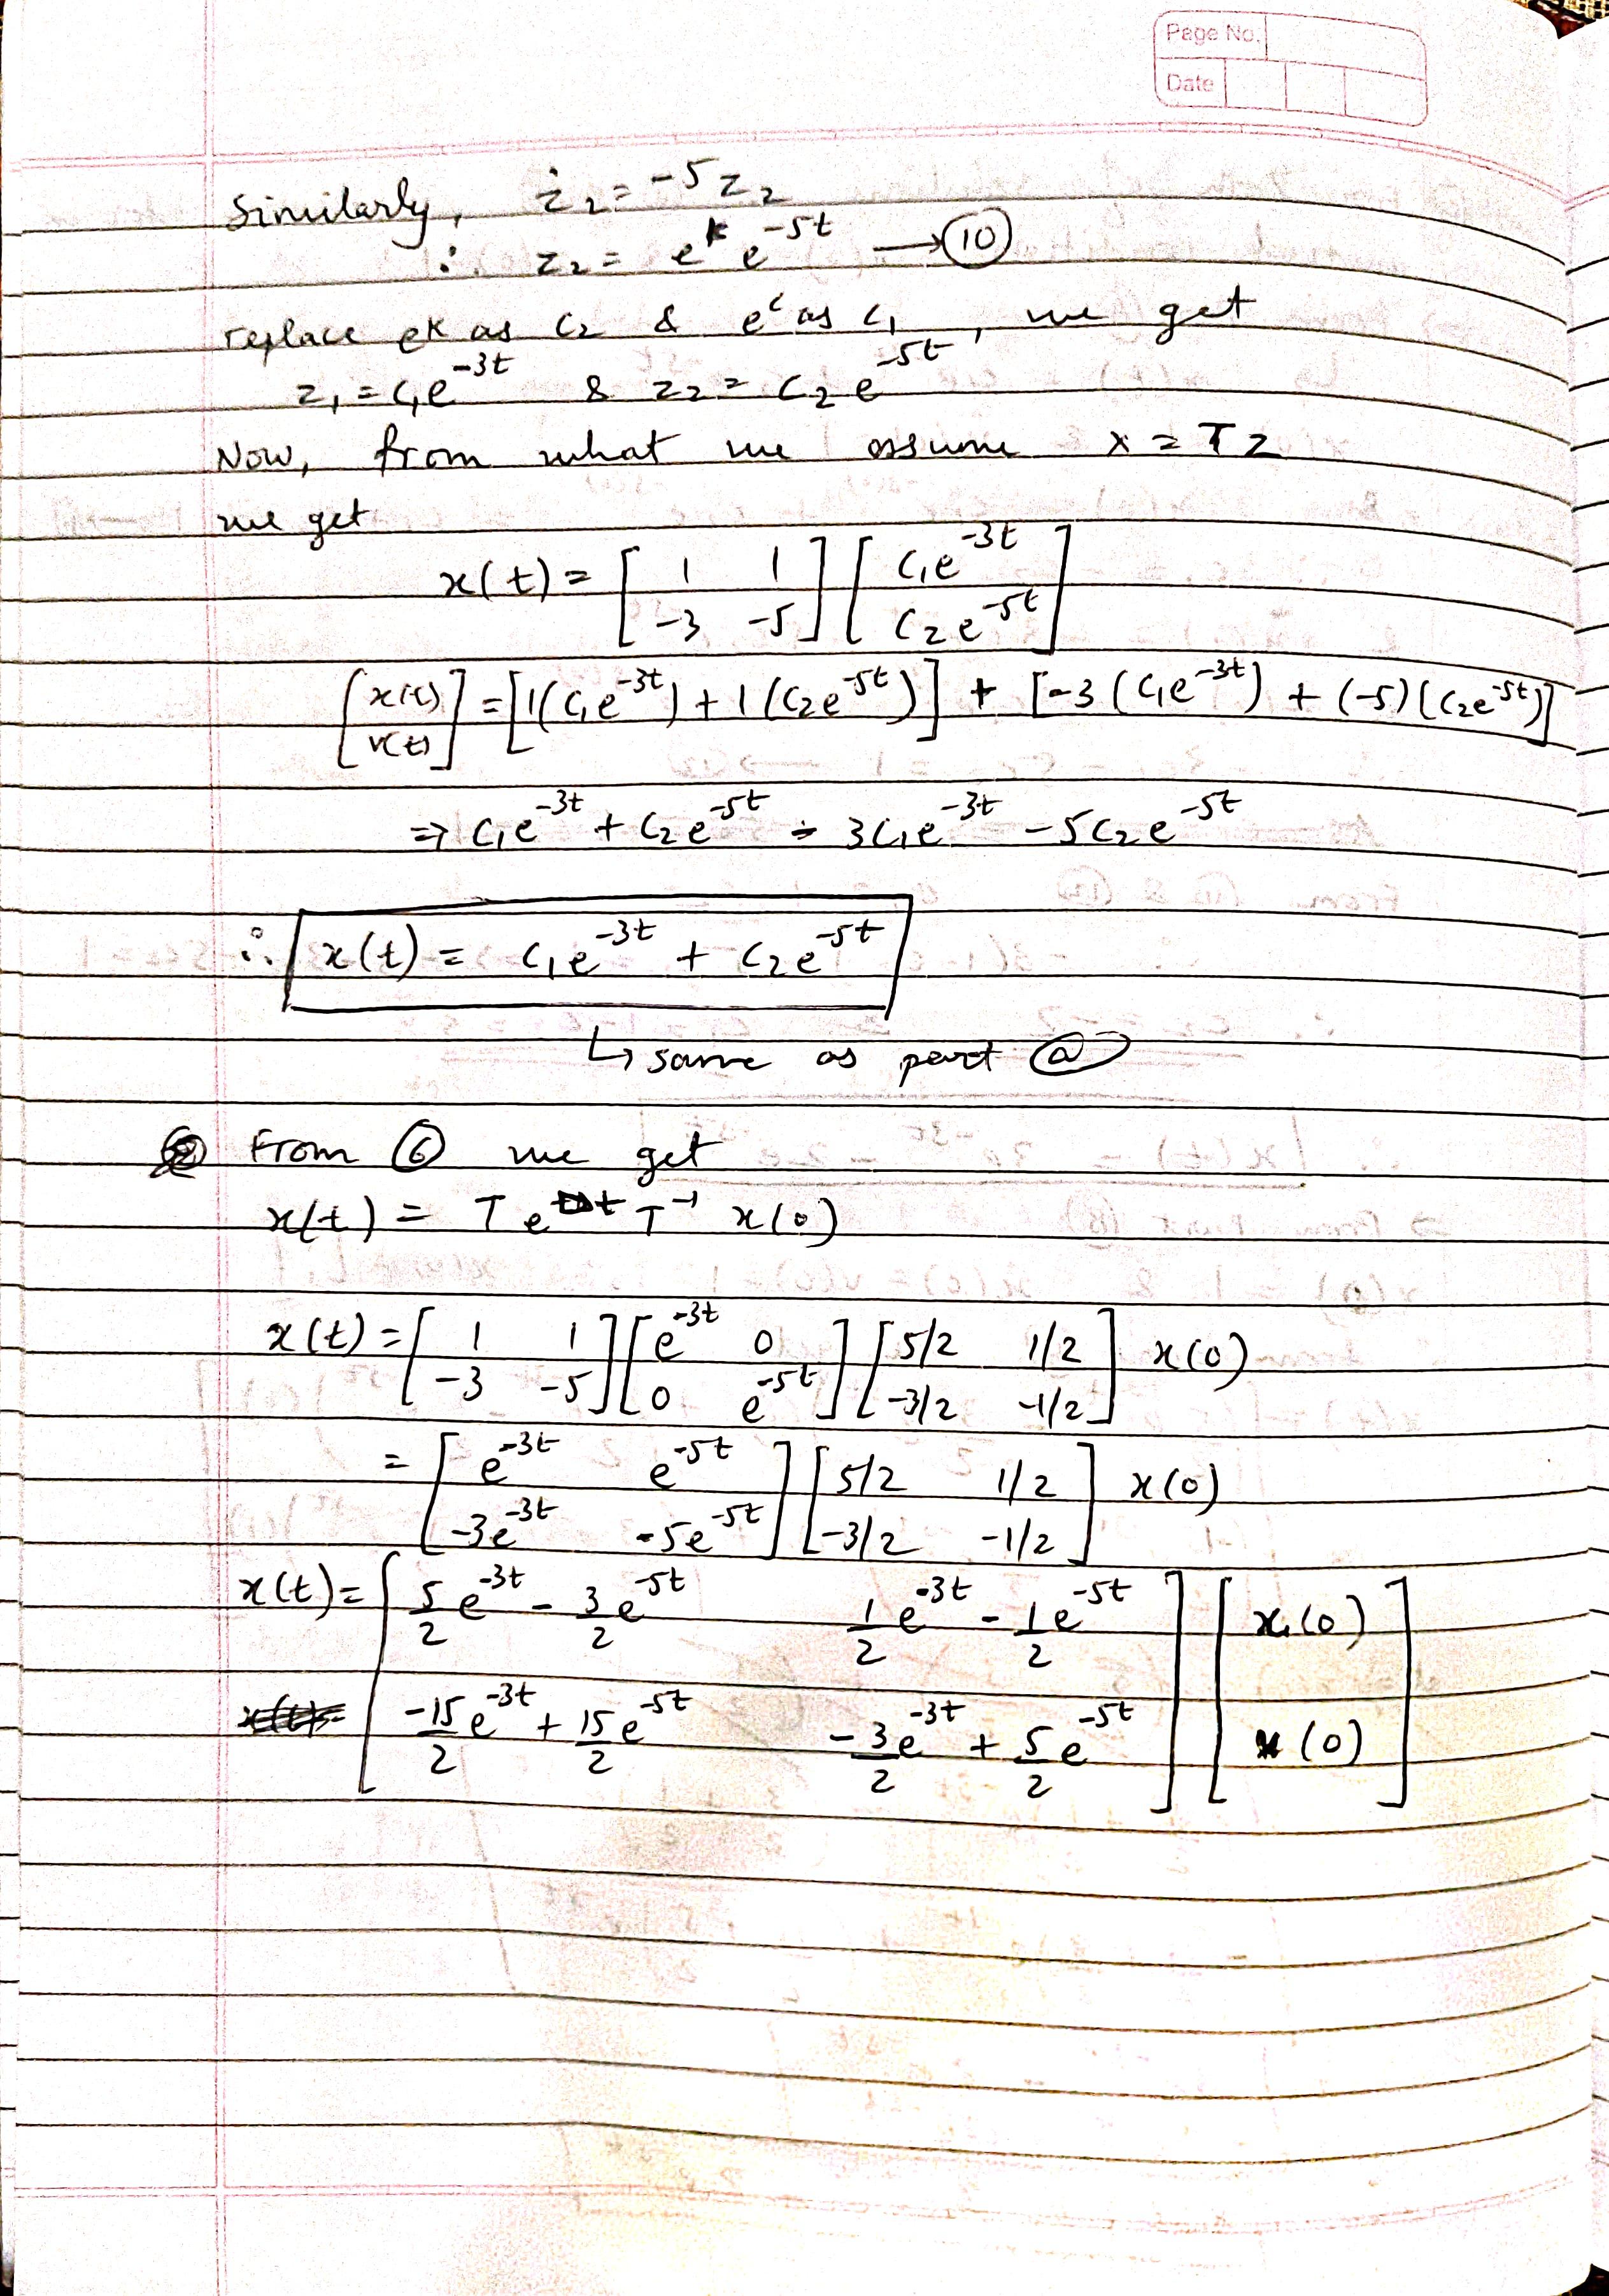 Page No.
Date
Similarly, ż₂ = -5z₂
∴ z₂ = e^k e^-5t → ⑩
replace e^k as c₂ & e^c as c₁, we get
z₁ = c₁e^-3t & z₂ = c₂e^-5t
Now, from what we assume x = Tz
we get
x(t) = [1 1; -3 -5] [c₁e^-3t; c₂e^-5t]
[x(t); v(t)] = [1(c₁e^-3t) + 1(c₂e^-5t)] + [-3(c₁e^-3t) + (-5)(c₂e^-5t)]
⇒ c₁e^-3t + c₂e^-5t - 3c₁e^-3t - 5c₂e^-5t
∴ x(t) = c₁e^-3t + c₂e^-5t
↳ same as part ⓐ
From ⑥ we get
x(t) = T e^t T^-1 x(0)
x(t) = [1 1; -3 -5] [e^-3t 0; 0 e^-5t] [5/2 1/2; -3/2 -1/2] x(0)
= [e^-3t e^-5t; -3e^-3t -5e^-5t] [5/2 1/2; -3/2 -1/2] x(0)
x(t) = [5/2 e^-3t - 3/2 e^-5t 1/2 e^-3t - 1/2 e^-5t; -15/2 e^-3t + 15/2 e^-5t -3/2 e^-3t + 5/2 e^-5t] [x(0); (0)]